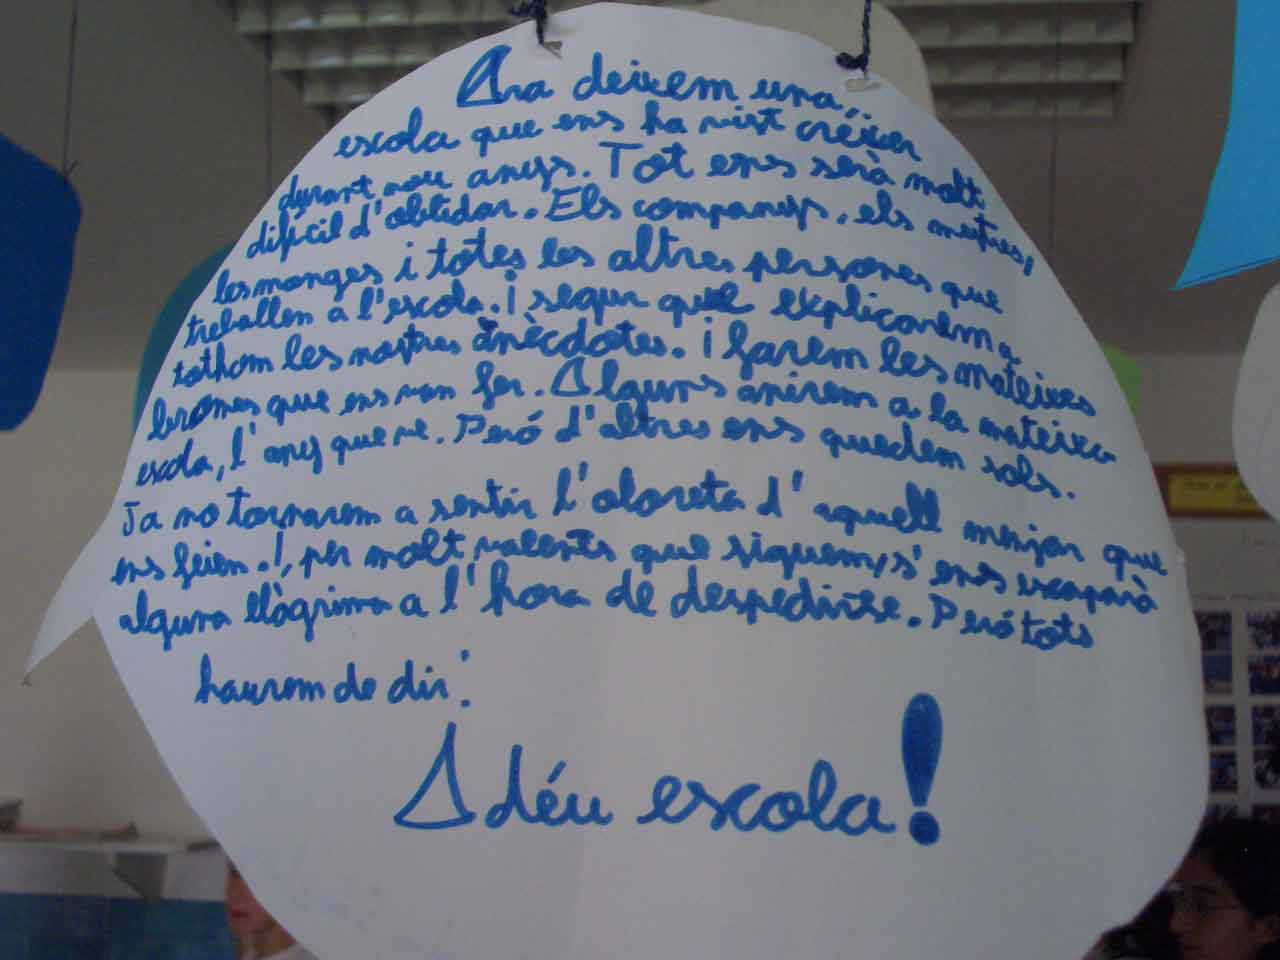 Ara deixem una
escola que ens ha vist créixer
durant nou anys. Tot ens serà molt
difícil d'oblidar. Els companys, els mestres,
les monges i totes les altres persones que
treballen a l'escola. i segur que explicarem a
tothom les nostres anècdotes. i farem les mateixes
bromes que ens van fer. Alguns anirem a la mateixa
escola, l'any que ve. Peró d'altres ens quedem sols.
Ja no tornarem a sentir l'oloreta d'aquell menjar que
ens feien. I, per molt valents que siguem, s'ens escaparà
alguna llàgrima a l'hora de despedirse. Peró tots
haurem de dir:
Adéu escola!